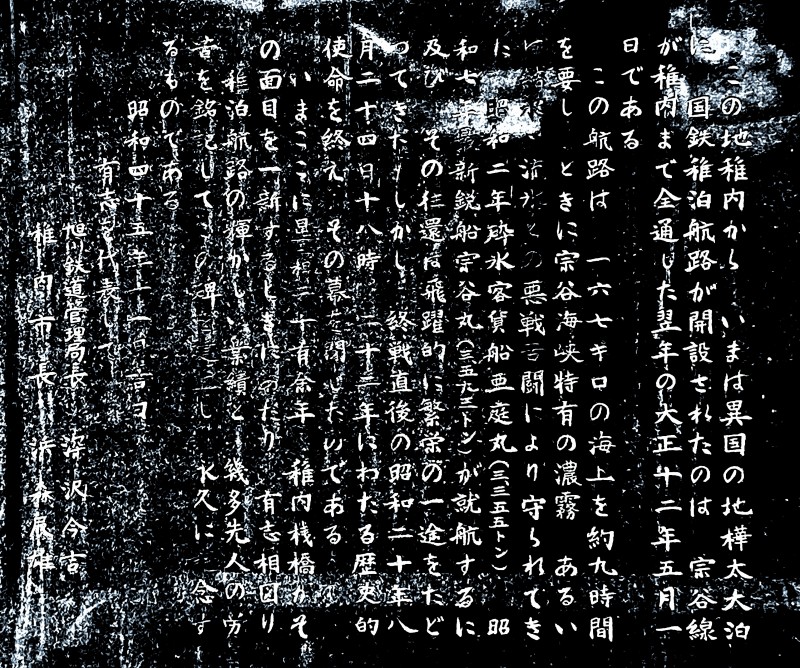 この地稚内から いまは異国の地樺太大泊
に 国鉄稚泊航路が開設されたのは 宗谷線
が稚内まで全通した翌年の大正十二年五月一
日である
この航路は 一六七キロの海上を約九時間
を要し ときに宗谷海峡特有の濃霧 あるい
は 流氷との悪戦苦闘により守られてき
に 昭和二年砕氷客貨船亜庭丸(三三五五トン) 昭
和七年最新鋭船宗谷丸(三五九三トン)が就航するに
及び その往還は飛躍的に繁栄の一途をたど
つてきた しかし 終戦直後の昭和二十年八
月二十四日十八時 二十二年にわたる歴史的
使命を終え その幕を閉じたのである
いまここに 二十有余年 稚内桟橋がそ
の面目を一新するしまにあたり 有志相図り
稚泊航路の輝かしい業績と 幾多先人の労
苦を銘としてこの碑 永久に記念す
るものである
昭和四十五年十一月吉日
有志を代表して
旭川鉄道管理局長 深沢今吉
稚内市長 浜森辰雄